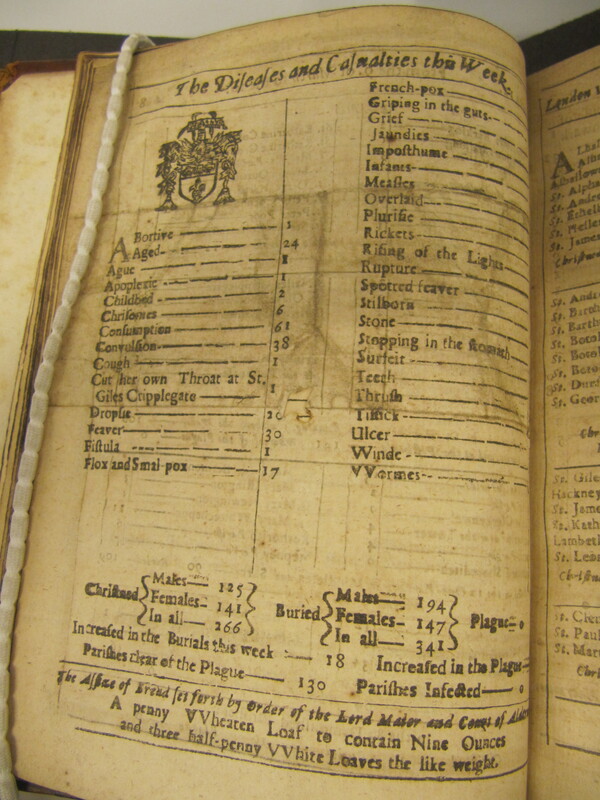 The Diſeaſes and Caſualties this Week.
Abortive — 1
Aged — 24
Ague — 1
Apoplexie — 1
Childbed — 2
Chriſomes — 6
Conſumption — 61
Convulſion — 38
Cough — 1
Cut her own Throat at St.
Giles Cripplegate — 1
Dropſie —
Feaver — 30
Fiſtula — 1
Flox and Smal-pox — 17
French-pox —
Griping in the guts —
Grief —
Jaundies —
Impoſthume —
Infants —
Meaſles —
Overlaid —
Pluriſie —
Rickets —
Riſing of the Lights —
Rupture —
Spotted feaver —
Stilborn —
Stone —
Stopping in the ſtomach
Surfeit —
Teeth —
Thruſh —
Tiſſick —
Ulcer —
Winde —
VVormes -
Chriſtned Males — 125
Females - 141
In all — 266
Buried Males — 194
Females - 147
In all — 341
Plague - 0
Increaſed in the Burials this week — 18 Increaſed in the Plague -
Pariſhes clear of the Plague — 130 Pariſhes Infected — 0
The Aſſize of Bread ſet forth by Order of the Lord Maior and Court of
A penny VVheaten Loaf to contain Nine Ounces
and three half-penny VVhite Loaves the like weight.
London
St.
St. Andre
St. Ethel
St. James
St. Andre
St. Barth
St. Geor
St. Gile
Hackney
St. Jame
St. Kath
Lambeth
St. Leon
St. Clem
St. Paul